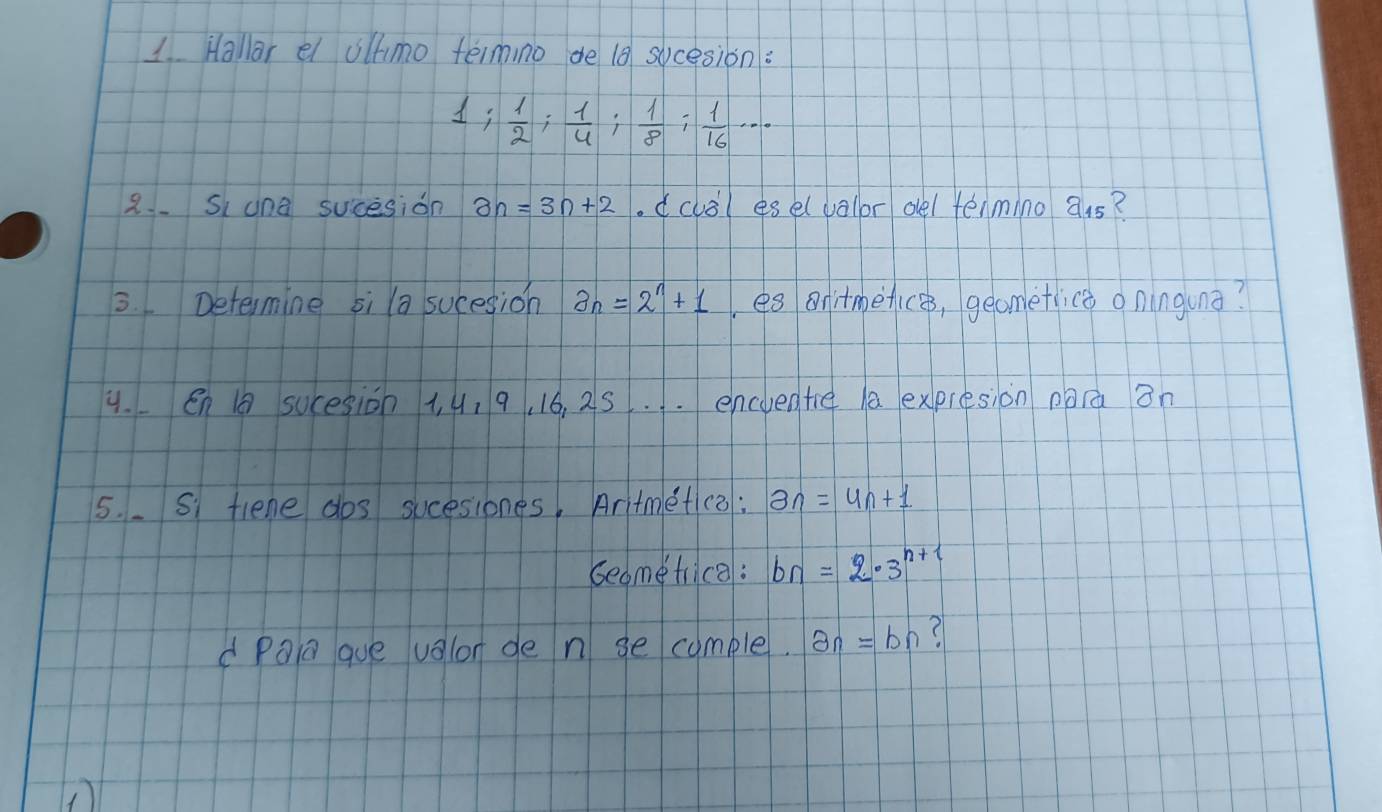 1.- Hallar el último término de la sucesión:
1 ; 1/2 ; 1/4 ; 1/8 ; 1/16 ...
2.- Si una sucesión an = 3n+2. ¿cuál es el valor del término a₁₅?
3.- Determine si la sucesión an = 2ⁿ + 1, es aritmética, geométrica o ninguna?
4.- En la sucesión 1, 4, 9, 16, 25 ... encuentre la expresión para an
5.- Si tiene dos sucesiones. Aritmética: an = 4n+1
Geométrica: bn = 2·3ⁿ⁺¹
¿Para que valor de n se cumple. an = bn?
1)